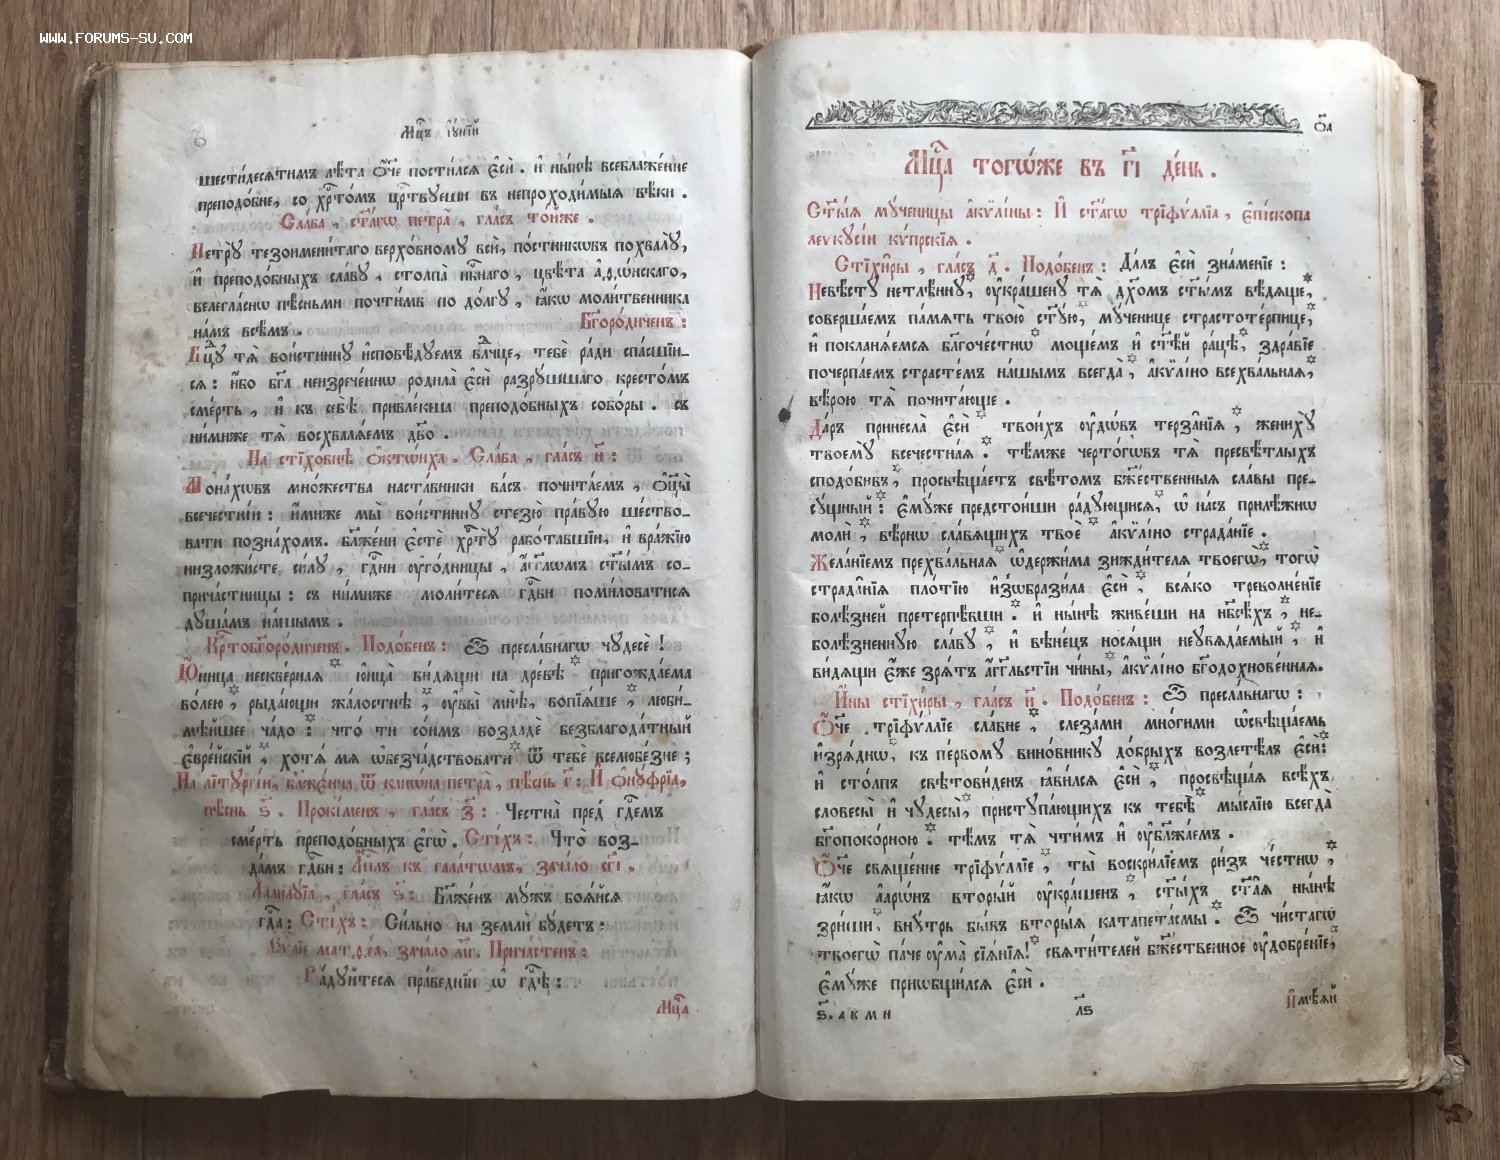 WWW.FORUMS-SU.COM
Мц҃ъ іꙋ́нїй
шестѝдесѧтимъ лѣ́та ѻ҆́ч҃е пости́лсѧ є҆сѝ. и҆ ны́нѣ всеблаже́нне
преподо́бне, со хр҃то́мъ црⷭ҇твꙋеши въ непроходи́мыѧ вѣ́ки.
Сла́ва, ст҃а́гѡ петра̀, гла́съ то́йже.
Петрꙋ̀ тезоимени́таго верхо́вномꙋ всѝ, по́стникѡвъ похвалꙋ̀,
и҆ преподо́бныхъ сла́вꙋ, столпа̀ нбⷭ҇наго, цвѣ́та а҆ѳѡ́нскаго,
велегла́снѡ пѣ́сньми почти́мъ по до́лгꙋ, ꙗ҆́кѡ моли́твенника
на́мъ всѣ̑мъ. Бг҃оро́диченъ:
Бцⷣꙋ тѧ̀ вои́стиннꙋ и҆сповѣ́дꙋемъ влⷣчце, тебє̀ ра́ди спа́сшїи-
сѧ: и҆́бо бг҃а неизрече́ннѡ родила̀ є҆сѝ разрꙋ́шшаго кресто́мъ
сме́рть, и҆ къ себѣ̀ привле́кша преподо́бныхъ собо́ры. съ
ни́миже тѧ̀ восхвалѧ́емъ дв҃о.
На стїхо́внѣ ѻ҆ктѡ́иха. Сла́ва, гла́съ и҃:
Мона́хѡвъ мно́жества наста́вники ва́съ почита́емъ, ѻ҆ц҃ы̀
всечестні́и: и҆́миже мы̀ вои́стиннꙋ стезю̀ пра́вꙋю ше́ство-
вати позна́хомъ. бл҃же́ни є҆стѐ хр҃тꙋ̀ рабо́тавшїи, и҆ вра́жїю
низложи́сте си́лꙋ, гдⷭ҇ни ᲂу҆го́дницы, а҆́гг҃лѡмъ ст҃ы̑мъ со-
прича́стницы: съ ни́миже моли́тесѧ гдⷭ҇ви поми́ловатисѧ
дꙋша́мъ на́шымъ.
Крⷭ҇тобг҃оро́диченъ. Подо́бенъ: Ѽ пресла́внагѡ чꙋдесѐ!
Ю҆́ница нескве́рнаѧ * ю҆нца̀ ви́дѧщи на дре́вѣ * пригожда́ема
во́лею, * рыда́ющи жа́лостнѣ, * ᲂу҆вы̀ мнѣ̀, вопїѧ́ше, * люби́-
мѣйшее ча́до: * что́ ти со́нмъ воздадѐ безблагода́тный
є҆вре́йскїй, * хотѧ́ мѧ ѡ҆безча́дствовати * ѿ тебє̀ вселюбе́зне;
На лїтꙋргі́и, блаже́нна ѿ канѡ́на петра̀, пѣ́снь г҃: И҆ ѻ҆нꙋ́фрїа,
пѣ́снь ѕ҃. Проки́менъ, гла́съ з҃: Честна̀ пред̾ гдⷭ҇емъ
сме́рть преподо́бныхъ є҆гѡ̀. Сті́хъ: Что̀ воз-
да́мъ гдⷭ҇ви: А҆пⷭ҇лъ къ гала́тѡмъ, зача́ло сг҃і.
А҆ллилꙋ́їа, гла́съ ѕ҃: Бл҃же́нъ мꙋ́жъ боѧ́йсѧ
гдⷭ҇а: Сті́хъ: Си́льно на землѝ бꙋ́детъ:
Є҆ѵⷢ҇лїе матѳе́а, зача́ло мг҃. Прича́стенъ:
Ра́дꙋйтесѧ првⷣнїи ѡ҆ гдⷭ҇ѣ:
Мцⷭ҇а
ѻ҃а
Мцⷭ҇а тогѡ́же въ г҃і де́нь.
Ст҃ы́ѧ мꙋ́ченицы а҆кѷлі́ны: И҆ ст҃а́гѡ трїфѵ́ллїа, є҆пі́скопа
леѵкꙋсі́и кѵ́прскїѧ.
Стїхи̑ры, гла́съ д҃. Подо́бенъ: Да́лъ є҆сѝ зна́менїе:
Невѣ́стꙋ нетлѣ́ннꙋ, * ᲂу҆кра́шенꙋ тѧ̀ дх҃о́мъ ст҃ы́мъ вѣ́дѧще, *
соверша́емъ па́мѧть твою̀ ст҃ꙋ́ю, * мꙋ́ченице страстоте́рпице, *
и҆ покланѧ́емсѧ бл҃гоче́стнѡ моще́мъ и҆ ст҃ѣ́й ра́цѣ, * здра́вїе
почерпа́емъ страсте́мъ на́шымъ всегда̀, * а҆кѷлі́но всехва́льнаѧ, *
вѣ́рою тѧ̀ почита́юще.
Да́ръ принесла̀ є҆сѝ * твои́хъ ᲂу҆дѡ́въ терза̑нїѧ, * женихꙋ̀
твоемꙋ̀ всечестна́ѧ. * тѣ́мже черто́гѡвъ тѧ̀ пресвѣ́тлыхъ
сподо́бивъ, * просвѣща́етъ свѣ́томъ бж҃е́ственныѧ сла́вы пре-
сꙋ́щный: * є҆мꙋ́же предстои́ши ра́дꙋющисѧ, * ѡ҆ на́съ прилѣ́жнѡ
молѝ, * вѣ́рнѡ сла́вѧщихъ твоѐ * а҆кѷлі́но страда́нїе.
Жела́нїемъ прехва́льнаѧ * ѡ҆держи́ма зижди́телѧ твоегѡ̀, * тогѡ̀
страда̑нїѧ пло́тїю и҆з̾ѡбрази́ла є҆сѝ, * всѧ́ко треволне́нїе
болѣ́зней претерпѣ́вши. * и҆ ны́нѣ живе́ши на нб҃сѣ́хъ, * не-
болѣ́зненнꙋю сла́вꙋ, * и҆ вѣне́цъ носѧ́щи неꙋвѧда́емый, * и҆
ви́дѧщи є҆́же зрѧ́тъ а҆́гг҃льстїи чи́ны, * а҆кѷлі́но бг҃одохнове́ннаѧ.
И҆́ны стїхи̑ры, гла́съ и҃. Подо́бенъ: Ѽ пресла́внагѡ:
Ѻ҆́ч҃е трїфѵ́ллїе сла́вне, * слеза́ми мно́гими ѡ҆свѣща́емь
и҆зрѧ́днѡ, * къ пе́рвомꙋ вино́вникꙋ до́брыхъ возлетѣ́лъ є҆сѝ: *
и҆ сто́лпъ свѣтови́денъ ꙗ҆ви́лсѧ є҆сѝ, * просвѣща́ѧ всѣ́хъ
словесы̀ и҆ чꙋдесы̀, * пристꙋпа́ющихъ къ тебѣ̀ * мы́слїю всегда̀
бг҃опоко́рною. * тѣ́мъ тѧ̀ чти́мъ и҆ ᲂу҆бл҃жа́емъ.
Ѻ҆́ч҃е свѧще́нне трїфѵ́ллїе, * ты̀ воскри́лїемъ ри́зъ че́стнѡ, *
ꙗ҆́кѡ а҆арѡ́нъ вторы́й ᲂу҆кра́шенъ, * ст҃ы́хъ ст҃а̑ѧ ны́нѣ
зри́ши. внꙋ́трь бы́въ вторы́ѧ катапета́смы. * Ѽ чи́стагѡ
твоегѡ̀ па́че ᲂу҆ма̀ сїѧ́нїѧ! * свѧти́телей бж҃е́ственное ᲂу҆добре́нїе, *
є҆мꙋ́же приѡбщи́лсѧ є҆сѝ.
ѕ҃. а к м н
л҃ѕ
И҆мѣ́ѧй